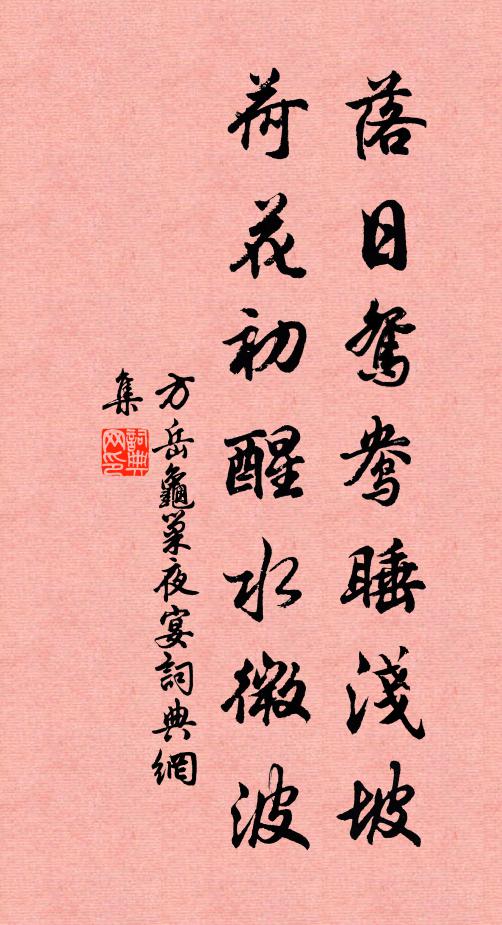 落日鴛鴦睡淺坡
荷花初醒水微波
方岳龜巢夜宴詞典網
集
詞典網印